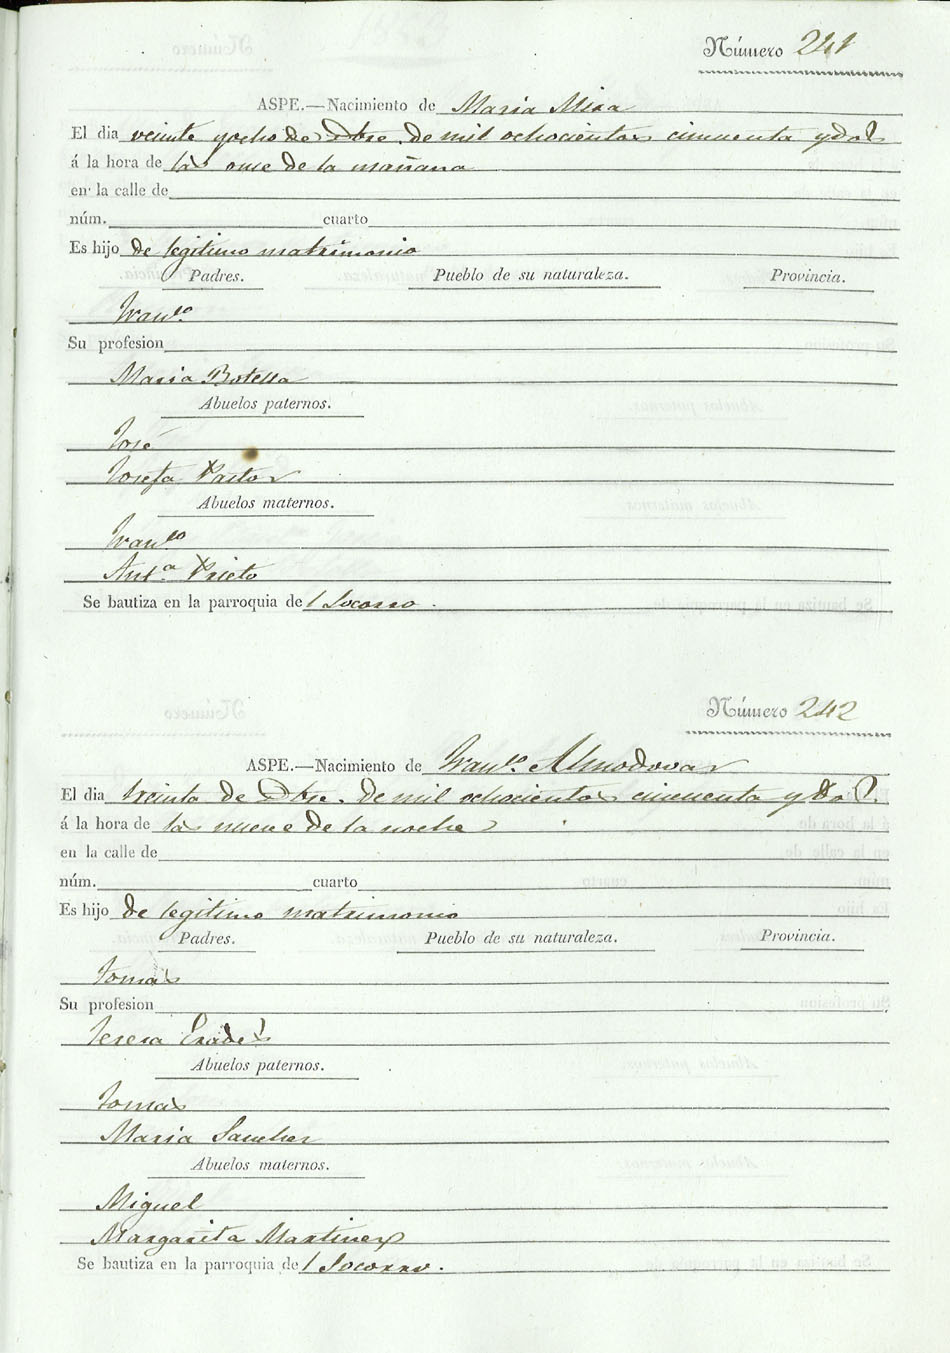 Número 241
ASPE.—Nacimiento de Maria Mira
El dia veinte y ocho de Dbre. de mil ochocientos cincuenta y dos
á la hora de las once de la mañana
en la calle de
núm. cuarto
Es hijo de legitimo matrimonio
Padres. Pueblo de su naturaleza. Provincia.
Franco.
Su profesion
Maria Botella
Abuelos paternos.
José
Josefa Pastor
Abuelos maternos.
Franco
Anta Prieto
Se bautiza en la parroquia del Socorro.
Número 242
ASPE.—Nacimiento de Franco. Almodovar
El dia treinta de Dbre. de mil ochocientos cincuenta y dos.
á la hora de las nueve de la noche
en la calle de
núm. cuarto
Es hijo de legitimo matrimonio
Padres. Pueblo de su naturaleza. Provincia.
Tomas
Su profesion
Teresa Erades
Abuelos paternos.
Tomas
Maria Sanchez
Abuelos maternos.
Miguel
Margarita Martinez
Se bautiza en la parroquia del Socorro.